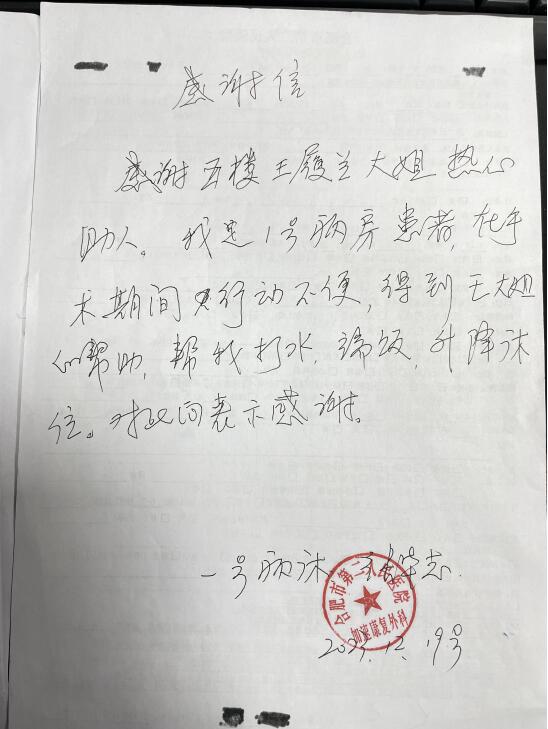 感谢信
感谢五楼王履兰大姐热心
助人。我是1号病房患者,在手
术期间行动不便,得到王大姐
的帮助,帮我打水,端饭,升降床
位。对此向表示感谢。
一号病床 志
合肥市第二人民医院
加速康复外科
2023.12.19号